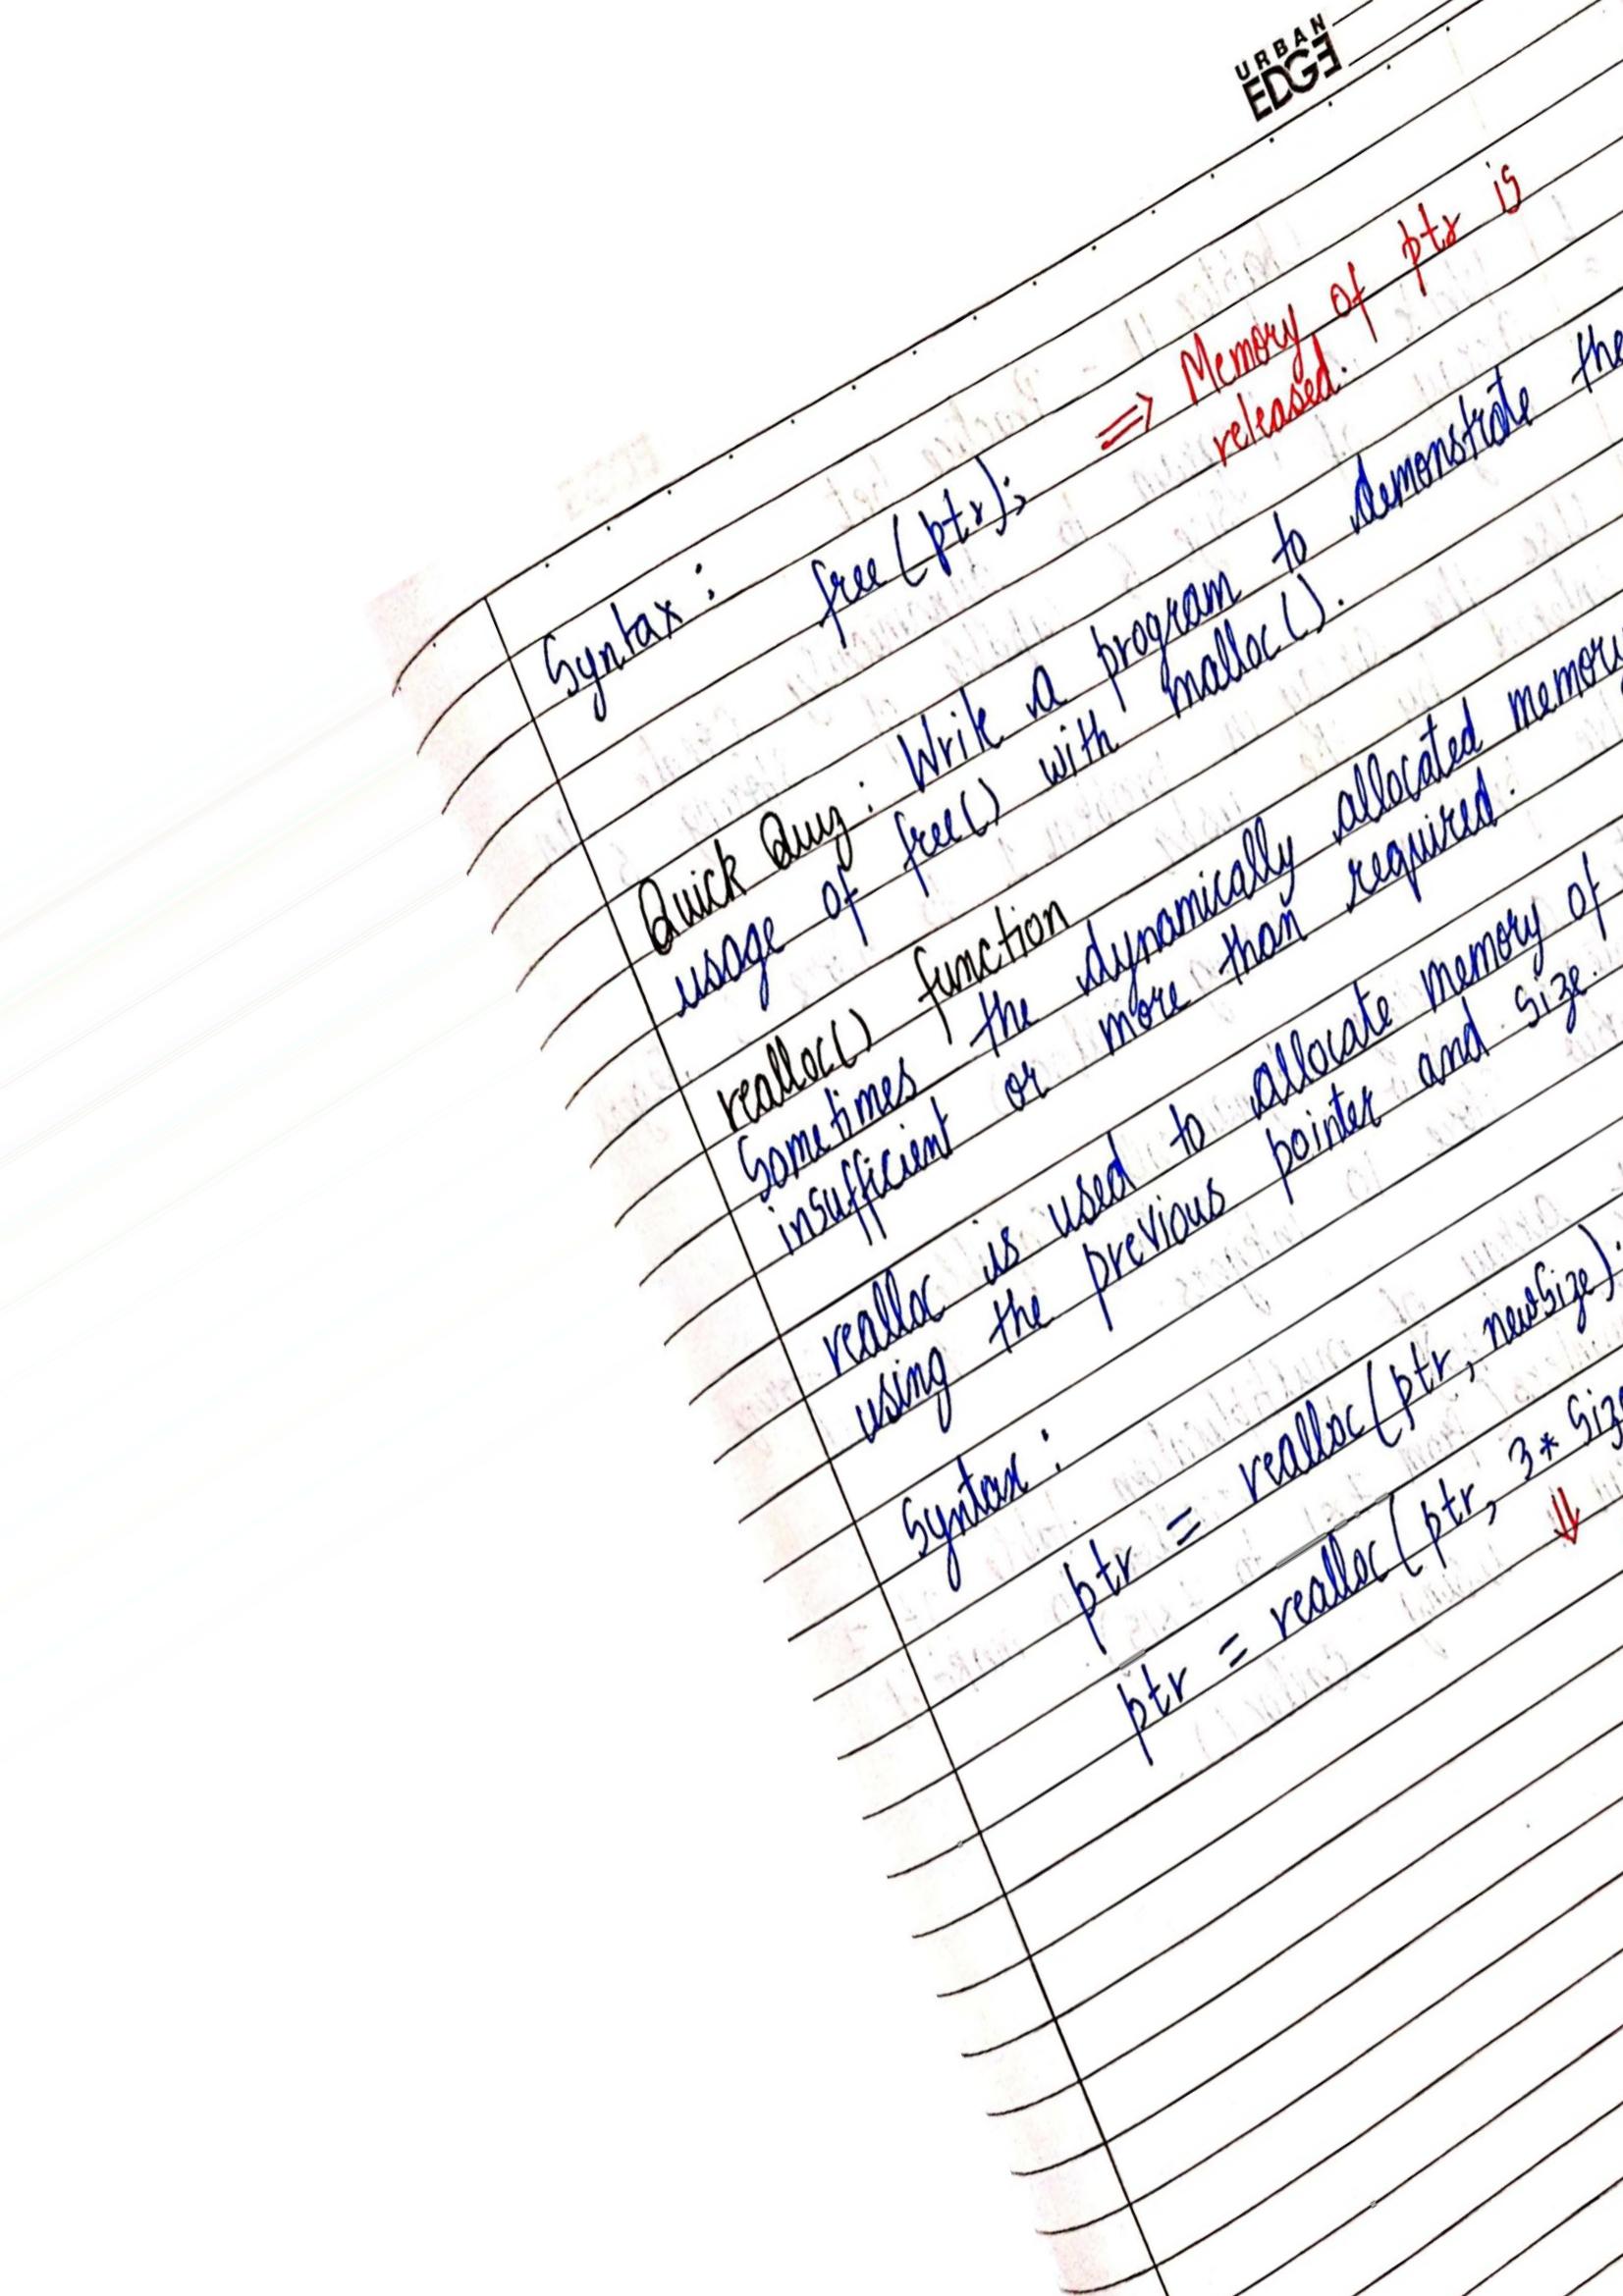 URBAN
EDGE
Syntax : free(ptr); ⇒ Memory of ptr is
released.
Quick Quiz : Write a program to demonstrate the
usage of free() with malloc().
realloc() function
Sometimes the dynamically allocated memory
insufficient or more than required.
realloc is used to allocate memory of
using the previous pointer and size.
Syntax :
ptr = realloc(ptr, newSize);
ptr = realloc(ptr, 3 *
⇓